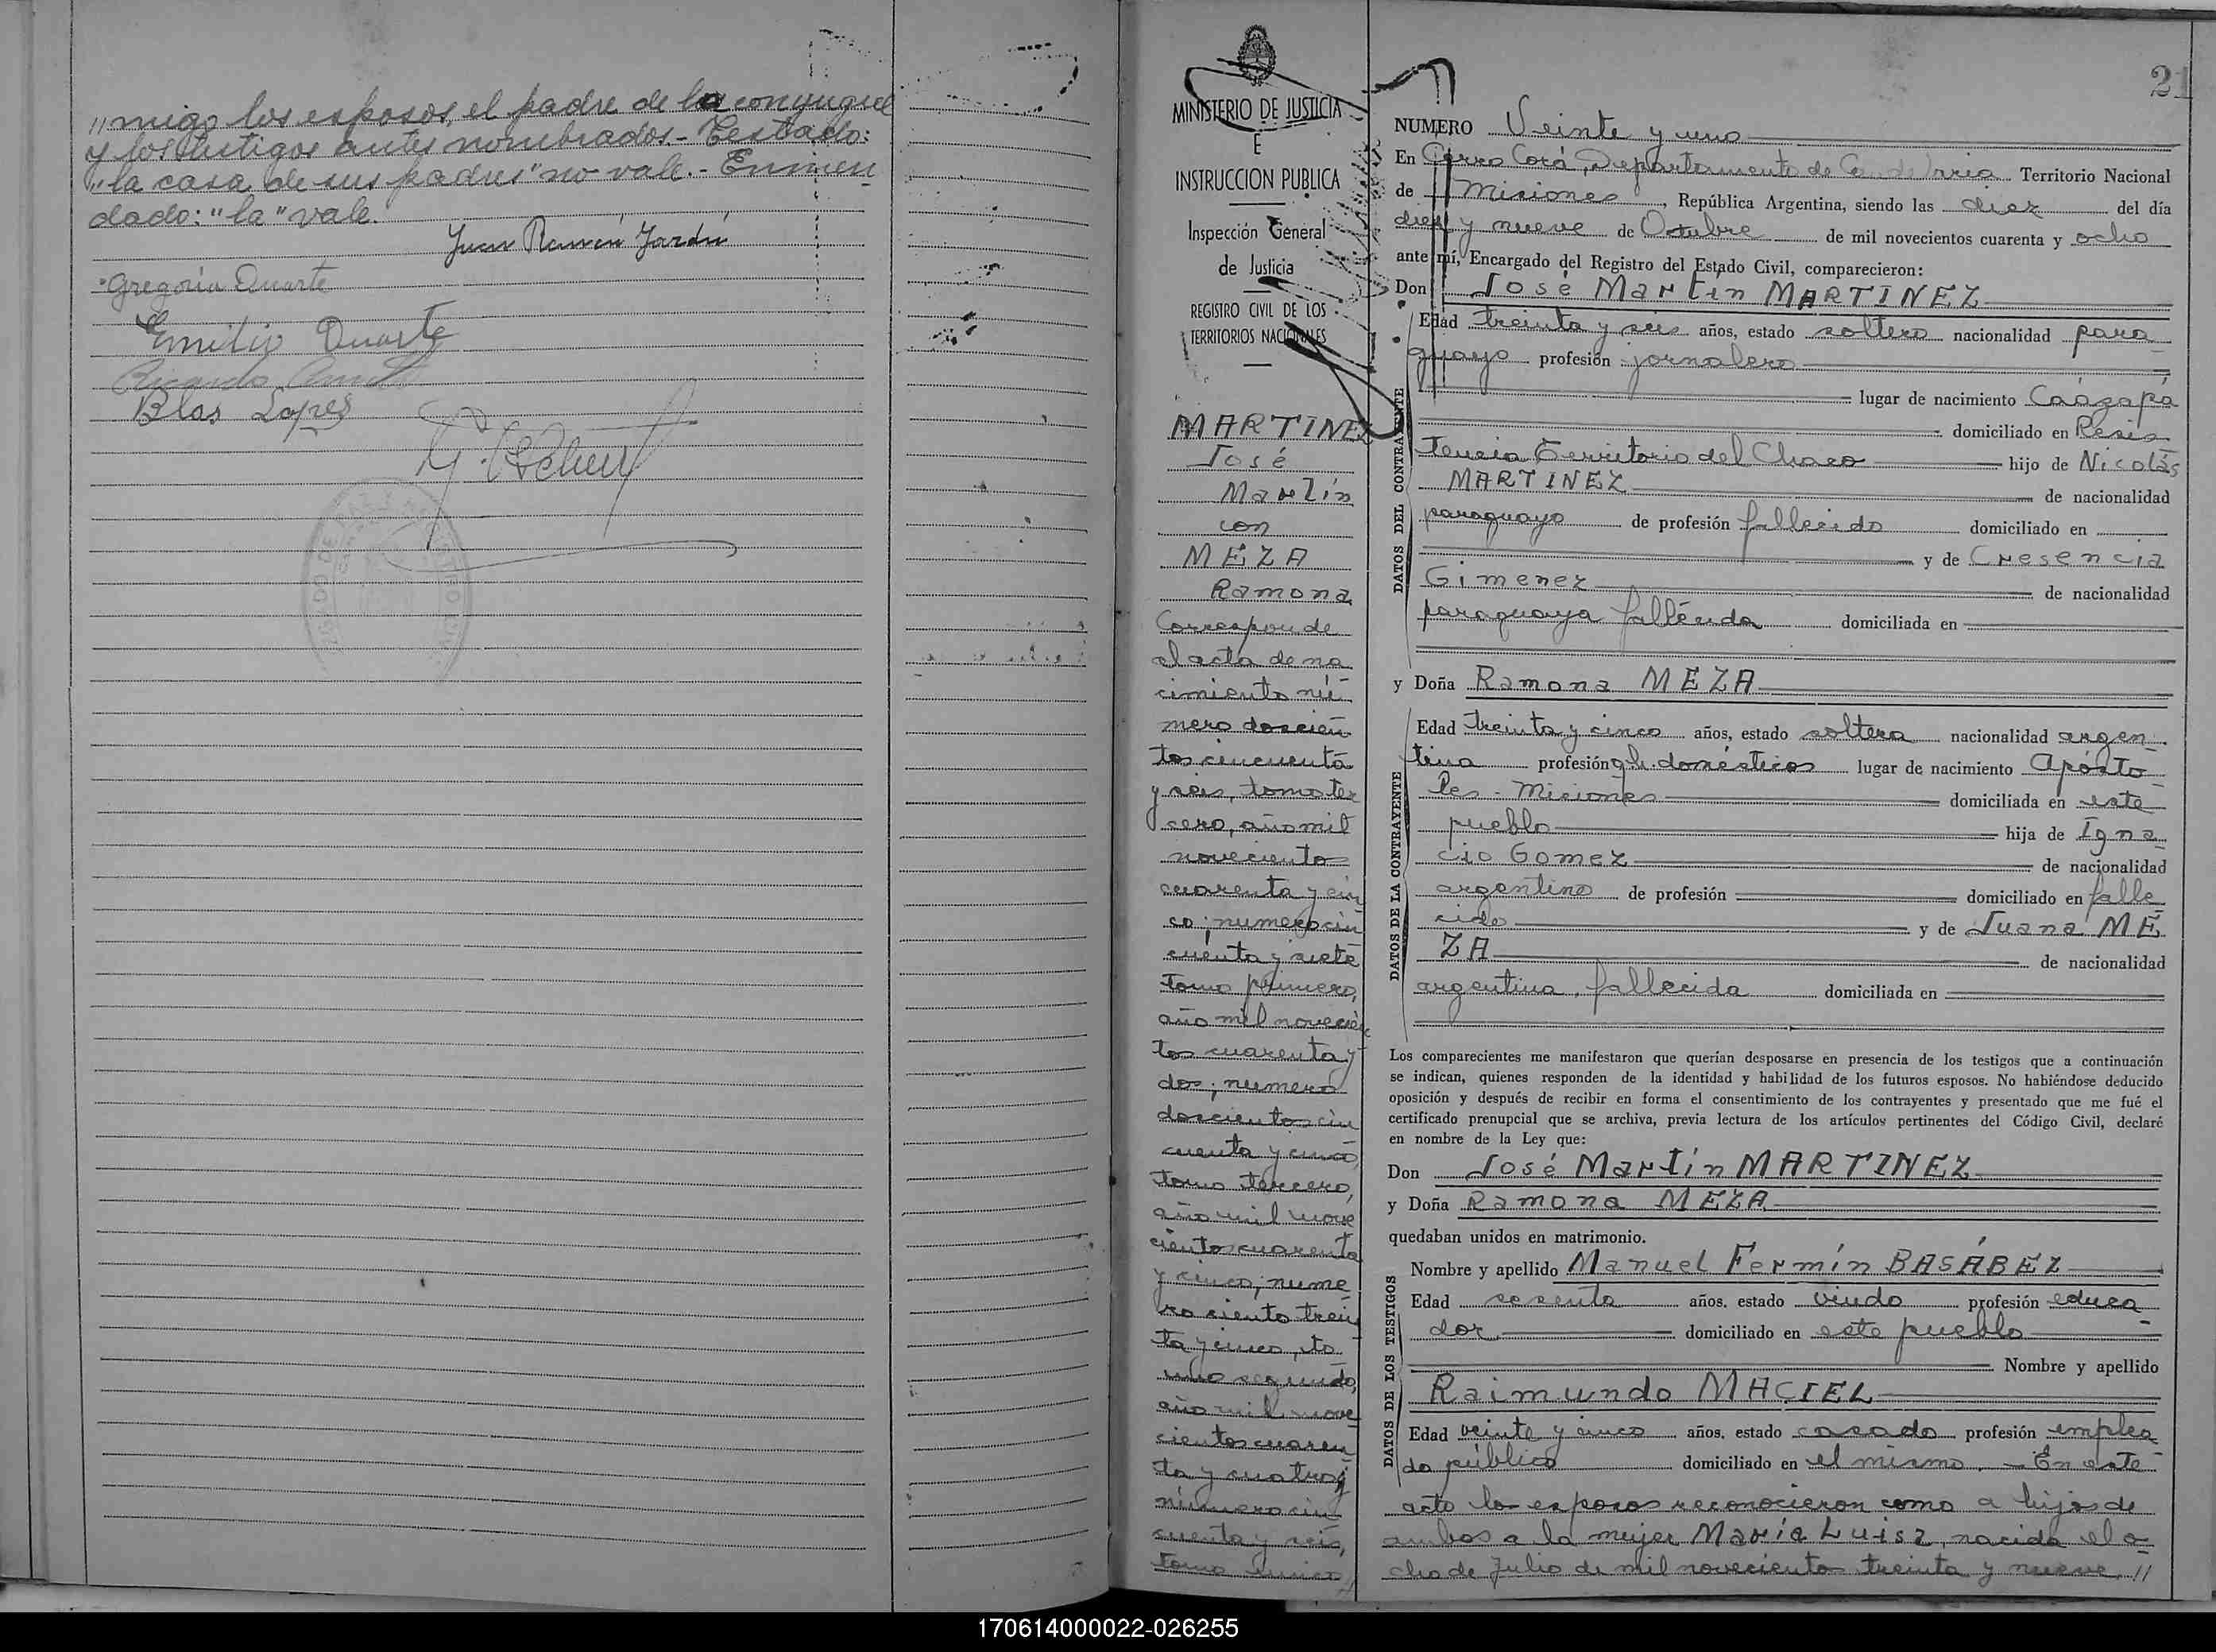 "migo los esposos, el padre de la conyugue
y los testigos antes nombrados.- Testado:
"la casa de sus padres" no vale.- Enmen
dado: "la" vale.
Juan Ramón Jardín
Gregoria Duarte
Emilio Duarte
Ricardo
Blas Lopes
21
MINISTERIO DE JUSTICIA
E
INSTRUCCION PUBLICA
Inspección General
de Justicia
REGISTRO CIVIL DE LOS
TERRITORIOS NACIONALES
MARTINEZ
José
Martín
con
MEZA
Ramona
Corresponde
el acta de na
cimiento nú
mero doscien
tos cincuenta
y seis, tomo ter
cero, año mil
novecientos
cuarenta y cin
co; numero cin
cuenta y siete
tomo primero,
año mil novecien
tos cuarenta y
dos; numero
doscientos cin
cuenta y cinco,
tomo tercero,
año mil nove
cientos cuarenta
y cinco; nume
ro ciento trein
ta y cinco, to
mo segundo,
año mil nove
cientos cuaren
ta y cuatro y
número cin
cuenta y seis,
tomo único
NUMERO Veinte y uno
En Cerro Corá, Departamento de Candelaria Territorio Nacional
de Misiones, República Argentina, siendo las diez del día
diez y nueve de Octubre de mil novecientos cuarenta y ocho
ante mí, Encargado del Registro del Estado Civil, comparecieron:
Don José Martín MARTINEZ
DATOS DEL CONTRAYENTE
Edad treinta y seis años, estado soltero nacionalidad para
guayo profesión jornalero
lugar de nacimiento Caázapá
domiciliado en Resis
tencia Territorio del Chaco hijo de Nicolás
MARTINEZ de nacionalidad
paraguayo de profesión fallecido domiciliado en
y de Cresencia
Gimenez de nacionalidad
paraguaya fallecida domiciliada en
y Doña Ramona MEZA
DATOS DE LA CONTRAYENTE
Edad treinta y cinco años, estado soltera nacionalidad argen
tina profesión q.h. domésticos lugar de nacimiento Apósto
les - Misiones domiciliada en este
pueblo hija de Igna
cio Gomez de nacionalidad
argentino de profesión domiciliado en falle
cido y de Juana ME
ZA de nacionalidad
argentina, fallecida domiciliada en
Los comparecientes me manifestaron que querían desposarse en presencia de los testigos que a continuación
se indican, quienes responden de la identidad y habilidad de los futuros esposos. No habiéndose deducido
oposición y después de recibir en forma el consentimiento de los contrayentes y presentado que me fué el
certificado prenupcial que se archiva, previa lectura de los artículos pertinentes del Código Civil, declaré
en nombre de la Ley que:
Don José Martín MARTINEZ
y Doña Ramona MEZA
quedaban unidos en matrimonio.
DATOS DE LOS TESTIGOS
Nombre y apellido Manuel Fermín BASÁBEZ
Edad sesenta años, estado viudo profesión educa
dor domiciliado en este pueblo
Nombre y apellido
Raimundo MACIEL
Edad veinte y cinco años, estado casado profesión emplea
do público domiciliado en el mismo.- En este
acto los esposos reconocieron como a hijos de
ambos a la mujer María Luisa, nacida el o
cho de Julio de mil novecientos treinta y nueve, //
170614000022-026255